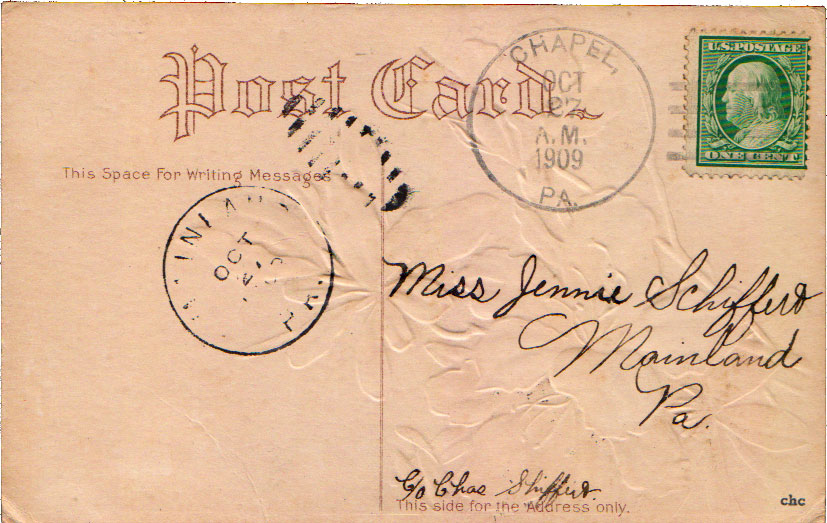 Post Card.
CHAPEL,
OCT
27
A.M.
1909
PA.
U.S. POSTAGE
ONE CENT
This Space For Writing Messages
MAINLAND
OCT
PA.
Miss Jennie Schiffert
Mainland
Pa.
C/o Chas Shiffert.
This side for the Address only.
chc